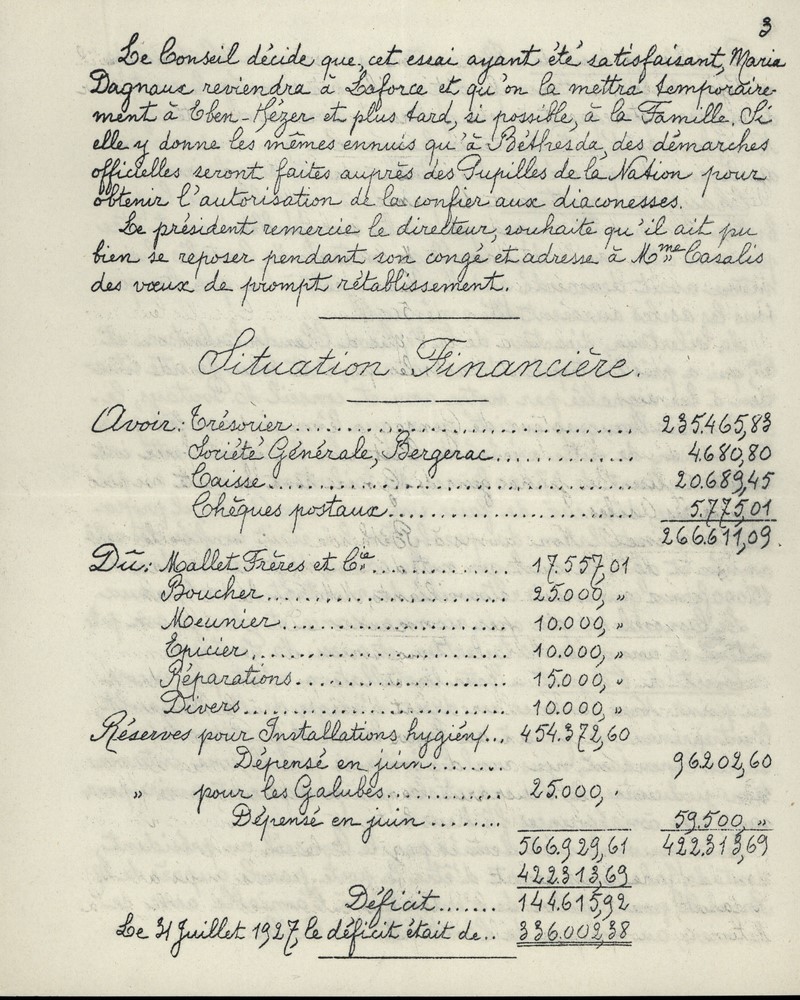 3
Le Conseil décide que, cet essai ayant été satisfaisant, Maria
Dagnaux reviendra à Laforce et qu'on la mettra temporaire-
ment à Eben-Hézer et plus tard, si possible, à la Famille. Si
elle y donne les mêmes ennuis qu'à Béthesda, des démarches
officielles seront faites auprès des Pupilles de la Nation pour
obtenir l'autorisation de la confier aux diaconesses.
Le président remercie le directeur, souhaite qu'il ait pu
bien se reposer pendant son congé et adresse à Mme Casalis
des vœux de prompt rétablissement.
Situation Financière.
Avoir: Trésorier.............................. 235.465,83
Société Générale, Bergerac.............. 4.680,80
Caisse.................................. 20.689,45
Chèques postaux........................ 5.775,01
266.611,09.
Dû: Mallet Frères et Cie............... 17.557,01
Boucher......................... 25.000, "
Meunier........................ 10.000, "
Epicier.......................... 10.000, "
Réparations..................... 15.000, "
Divers.......................... 10.000, "
Réserves pour Installations hygién/... 454.372,60
Dépensé en juin........ 96.202,60
" pour les Galubes............ 25.000, "
Dépensé en juin........ 59.500, "
566.929,61 422.313,69
422.313,69
Déficit....... 144.615,92
Le 31 Juillet 1927, le déficit était de.. 336.002,38